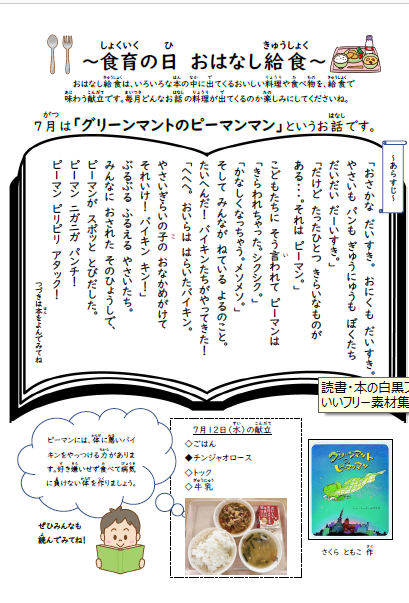 ～食育の日 おはなし給食～
おはなし給食は、いろいろな本の中に出てくるおいしい料理や食べ物を、給食で
味わう献立です。毎月どんなお話の料理が出てくるのか楽しみにしてくださいね。
7月は「グリーンマントのピーマンマン」というお話です。
～あらすじ～
「おさかな だいすき。おにくも だいすき。
やさいも パンも ぎゅうにゅうも ぼくたち
だいだい だーいすき。」
「だけど たったひとつ きらいなものが
ある・・・。それは ピーマン。」
こどもたちに そう言われて ピーマンは
「きらわれちゃった。シクシク。」
「かなしくなっちゃう。メソメソ。」
そして みんなが ねている よるのこと。
たいへんだ！バイキンたちがやってきた！
「へへへ。おいらは はらいたバイキン。
やさいぎらいの子の おなかめがけて
それいけー！バイキン キン！」
ぶるぶる ふるえる やさいたち。
みんなに おされた そのひょうしで、
ピーマンが スポッと とびだした。
ピーマン ニガニガ パンチ！
ピーマン ピリピリ アタック！
つづきは本をよんでみてね
読書・本の白黒フ
いいフリー素材集
ピーマンには、体に悪いバイ
キンをやっつける力がありま
す。好き嫌いせず食べて病気
に負けない体を作りましょう。
ぜひみんなも
読んでみてね！
7月12日（水）の献立
◇ごはん
◆チンジャオロース
◇トック
◇牛乳
グリーンマントの
ピーマンマン
さくら ともこ 作